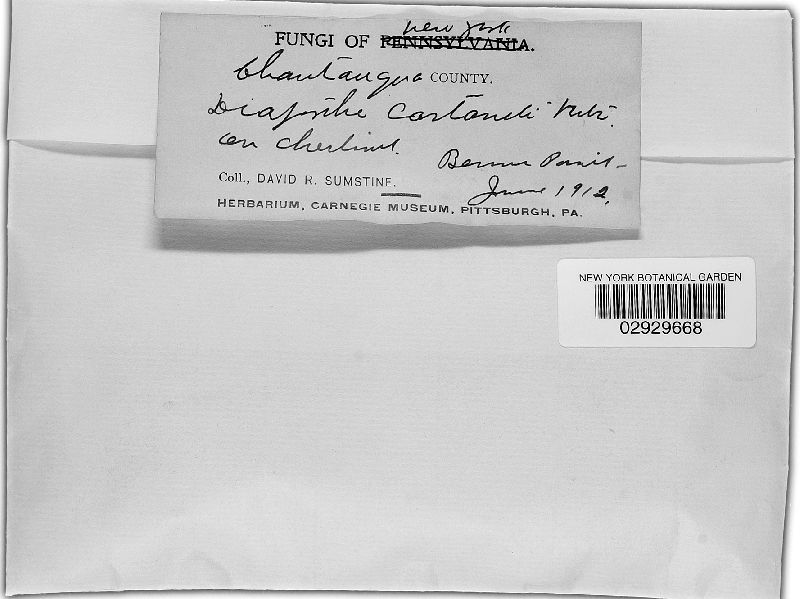 new york
FUNGI OF PENNSYLVANIA.
Chautauqua COUNTY.
Diaporthe
on chestnut. Bemus Point
Coll., DAVID R. SUMSTINE. June 1912.
HERBARIUM, CARNEGIE MUSEUM, PITTSBURGH, PA.
NEW YORK BOTANICAL GARDEN
02929668